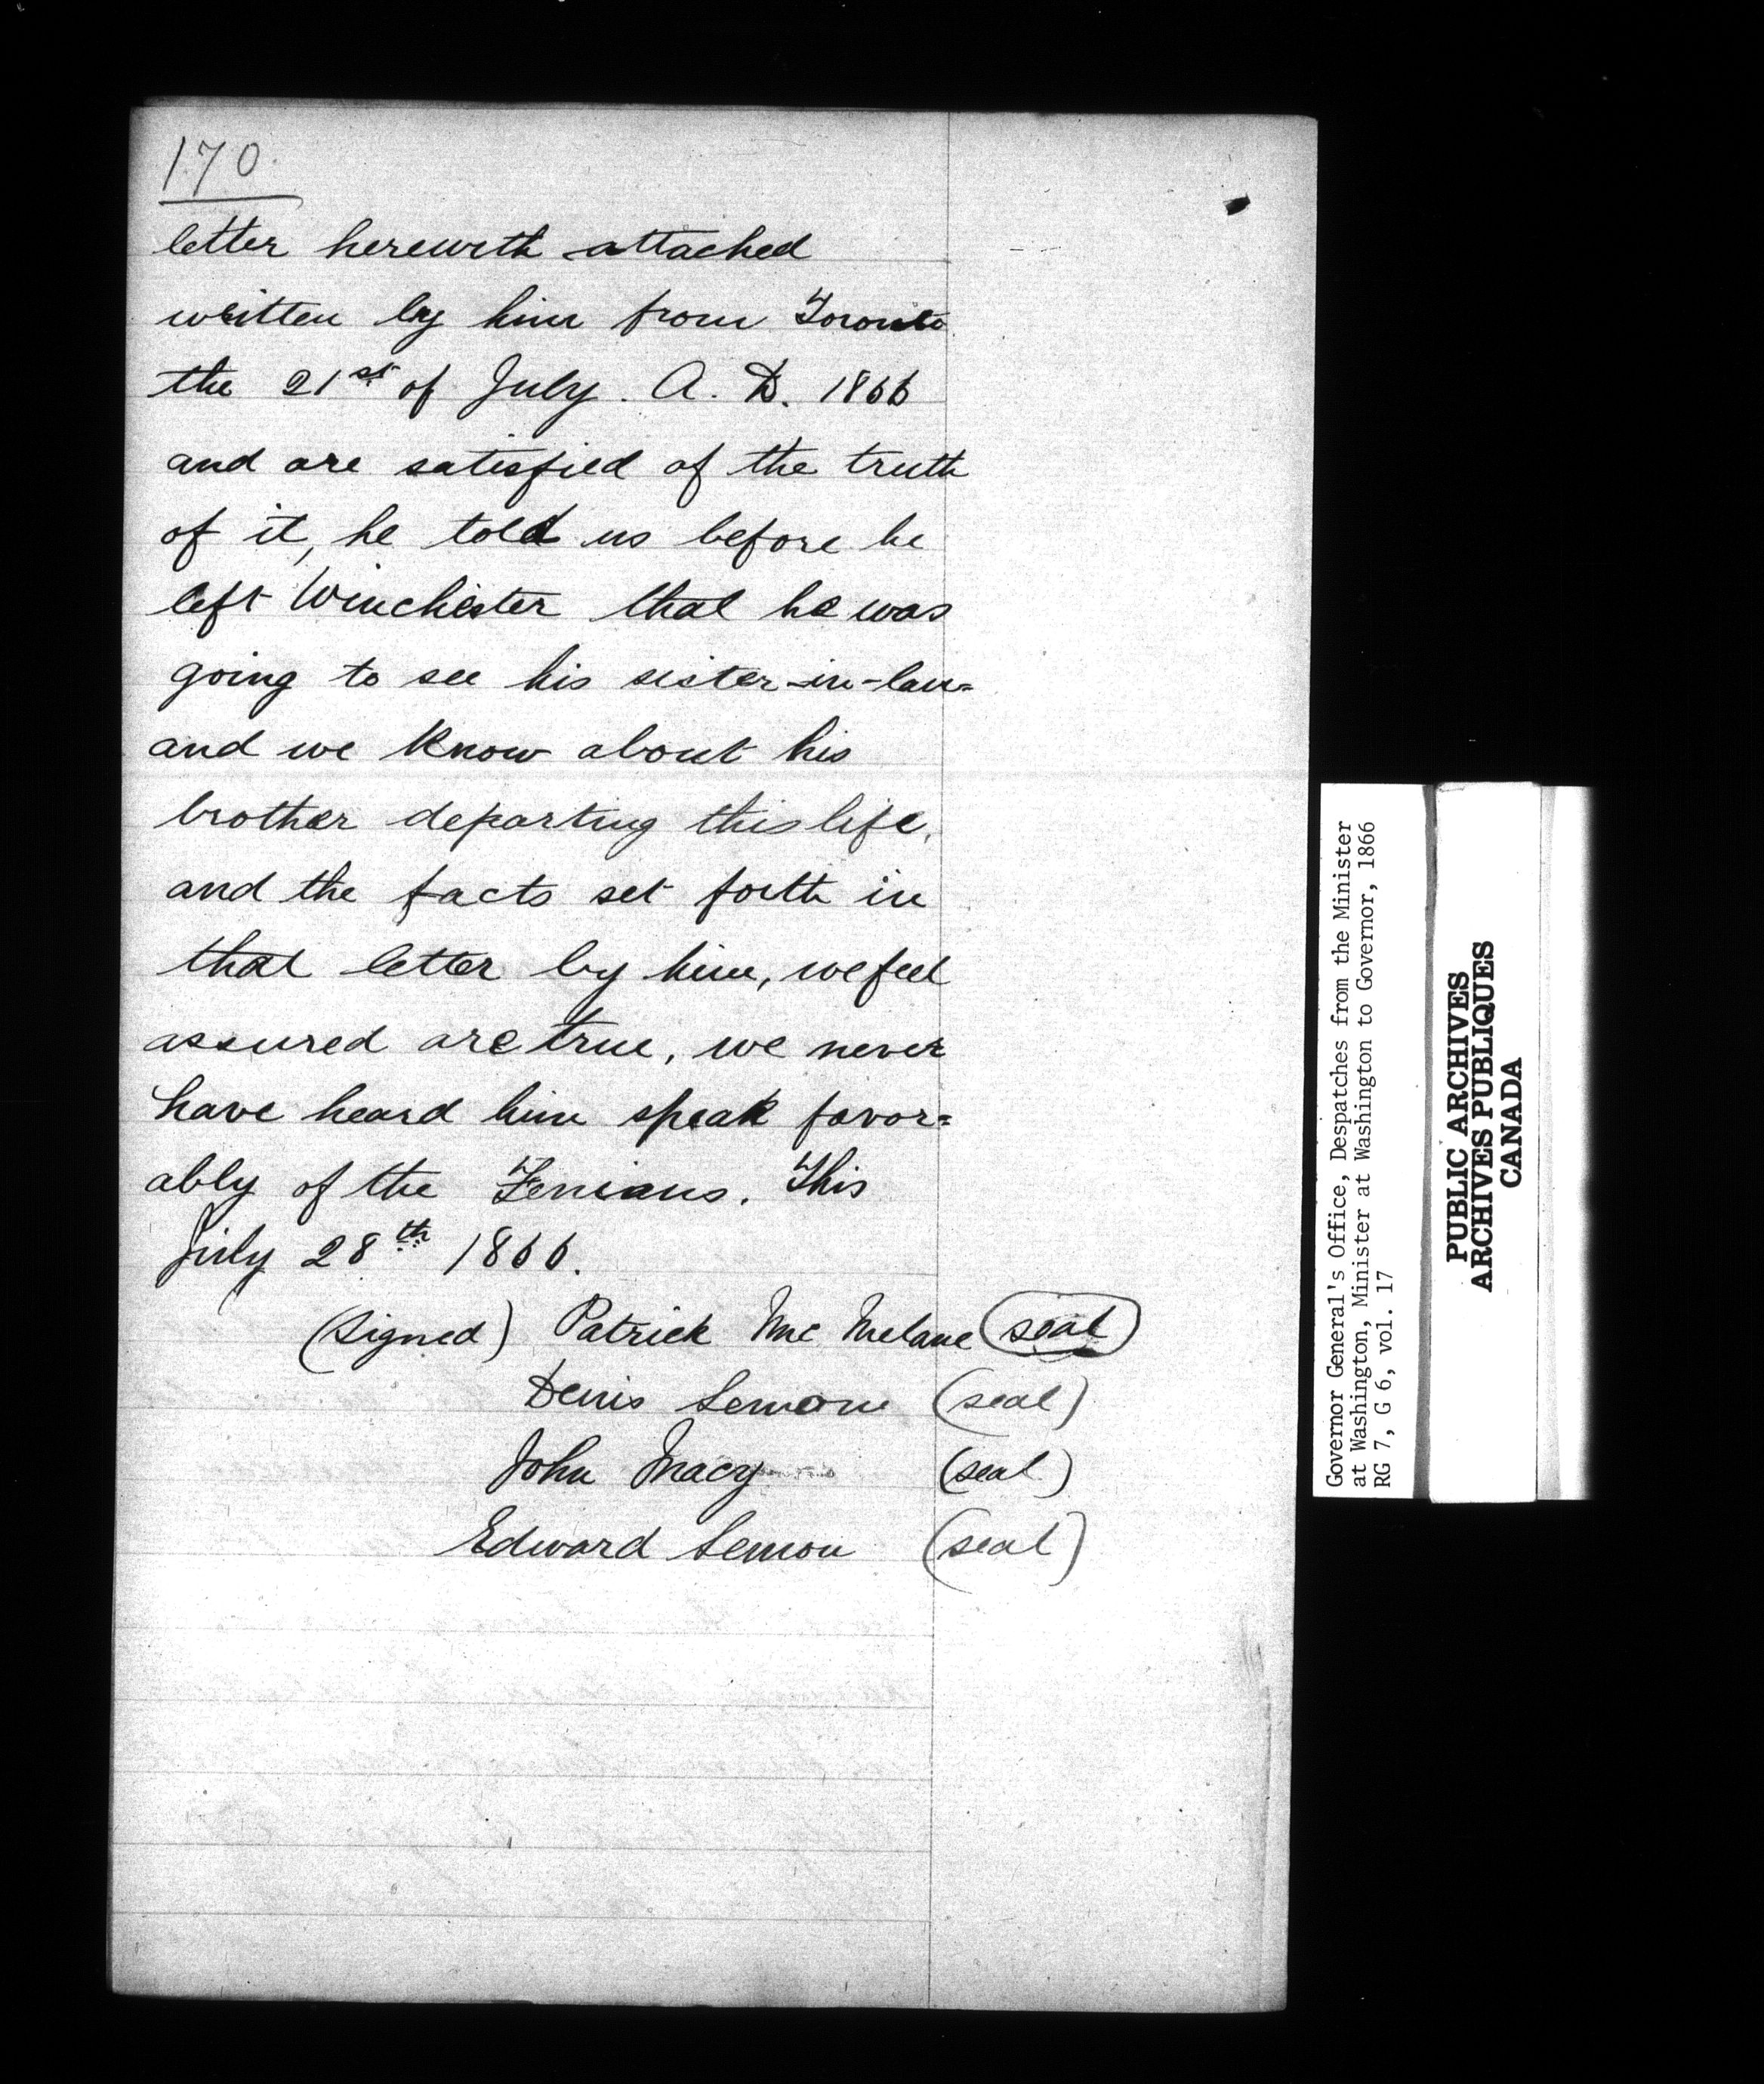 170
letter herewith attached
written by him from Toronto
the 21st of July. A. D. 1866
and are satisfied of the truth
of it, he told us before he
left Winchester that he was
going to see his sister-in-law
and we know about his
brother departing this life,
and the facts set forth in
that letter by him, we feel
assured are true, we never
have heard him speak favor=
ably of the Fenians. This
July 28th 1866.
(Signed) Patrick Mc (seal)
Denis (seal)
John Macy (seal)
Edward Lemon (seal)
Governor General's Office, Despatches from the Minister
at Washington, Minister at Washington to Governor, 1866
RG 7, G 6, vol. 17
PUBLIC ARCHIVES
ARCHIVES PUBLIQUES
CANADA